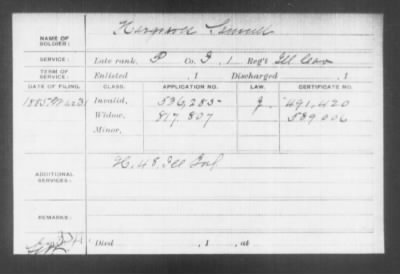 NAME OF SOLDIER: Samuel
SERVICE: Late rank, P Co. I, 1 Reg't Ill Cav
TERM OF SERVICE: Enlisted , 1 Discharged , 1
DATE OF FILING. CLASS. APPLICATION NO. LAW. CERTIFICATE NO.
1885 Invalid, 536,285 491,420
Widow, 817.807 589006
Minor,
ADDITIONAL SERVICES: H. 48. Ill Inf
REMARKS:
Died , 1 , at